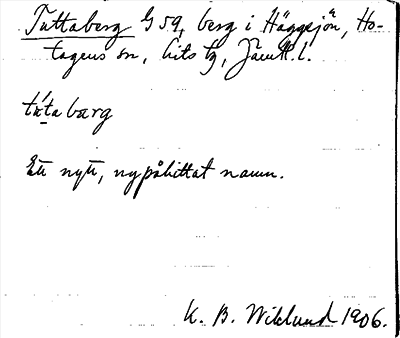 Tuttaberg G 59, berg i Häggsjön, Ho-
tagens sn, Lits tg, Jämtl. l.
tu̍ta bærg
Ett nytt, nypåhittat namn.
K. B. Wiklund 1906.